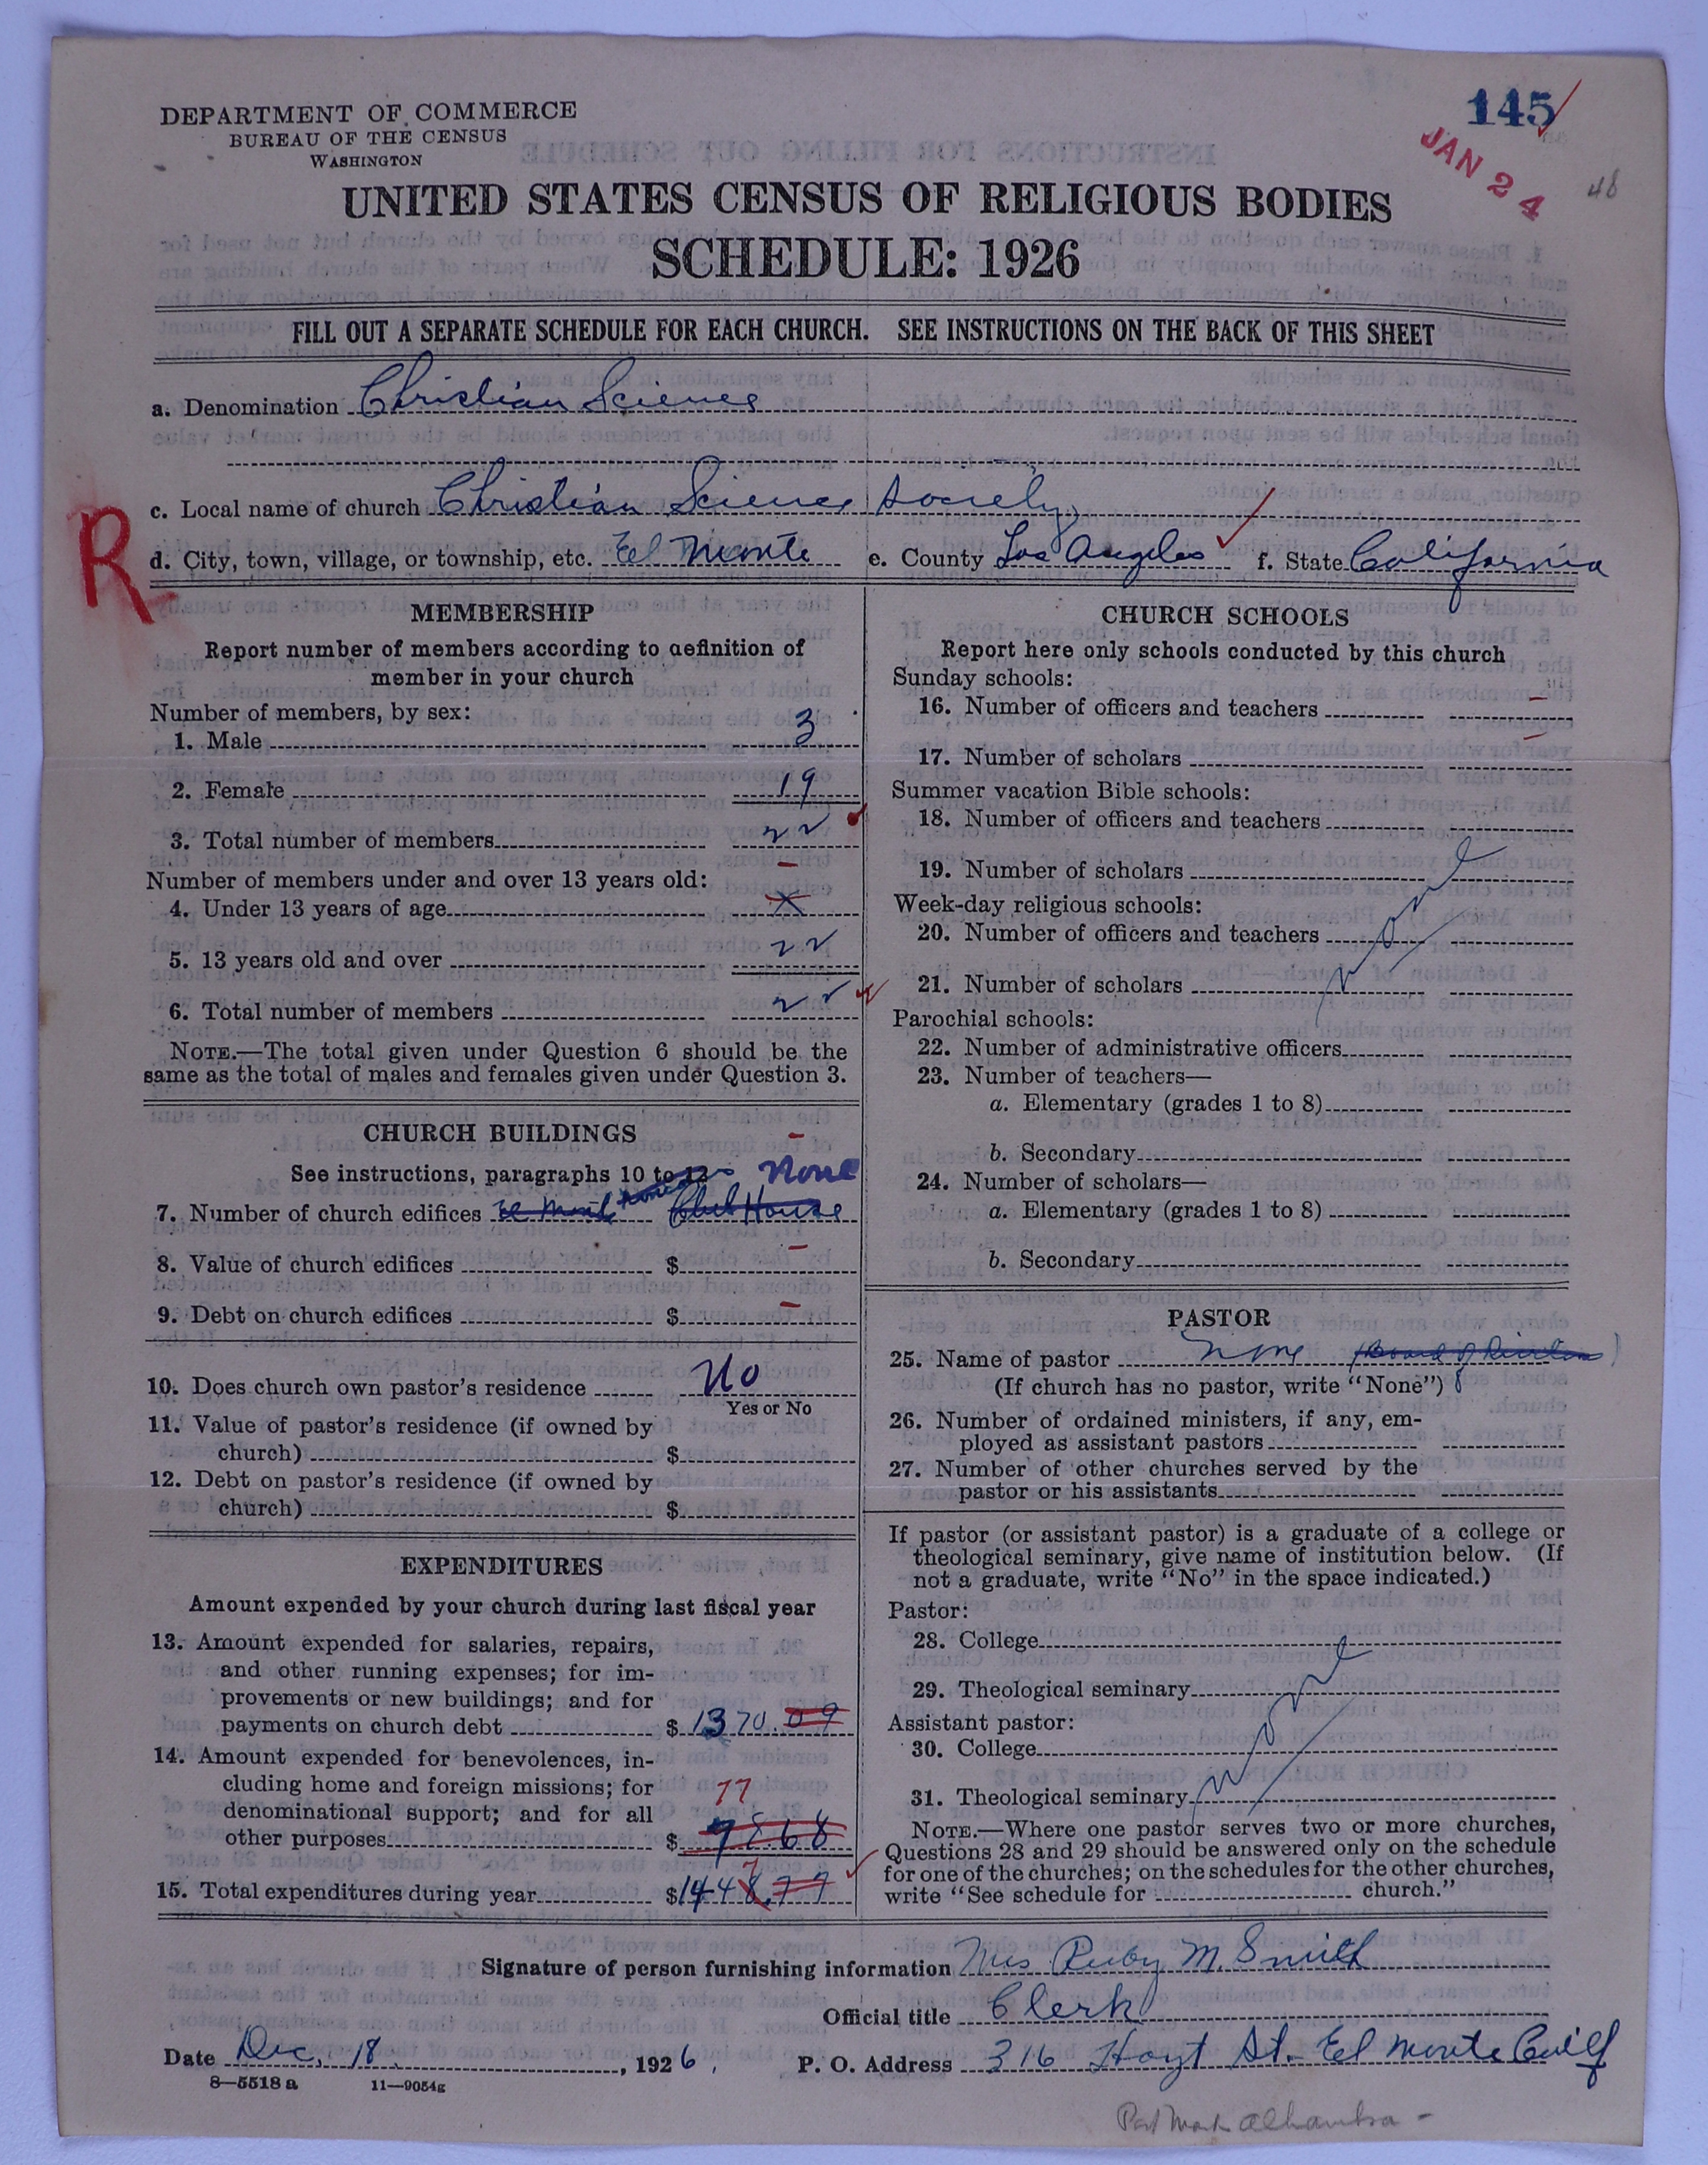 DEPARTMENT OF COMMERCE
BUREAU OF THE CENSUS
WASHINGTON
145
JAN 24
48
UNITED STATES CENSUS OF RELIGIOUS BODIES
SCHEDULE: 1926
FILL OUT A SEPARATE SCHEDULE FOR EACH CHURCH. SEE INSTRUCTIONS ON THE BACK OF THIS SHEET
a. Denomination Christian Science
c. Local name of church Christian Science Society
R
d. City, town, village, or township, etc. El Monte e. County Los Angeles f. State California
MEMBERSHIP
Report number of members according to definition of
member in your church
Number of members, by sex:
1. Male 3
2. Female 19
3. Total number of members 22
Number of members under and over 13 years old:
4. Under 13 years of age X
5. 13 years old and over 22
6. Total number of members 22
NOTE.—The total given under Question 6 should be the
same as the total of males and females given under Question 3.
CHURCH BUILDINGS
See instructions, paragraphs 10 to 12 None
7. Number of church edifices El Monte Club House
8. Value of church edifices $ -
9. Debt on church edifices $ -
10. Does church own pastor's residence No
Yes or No
11. Value of pastor's residence (if owned by
church) $
12. Debt on pastor's residence (if owned by
church) $
EXPENDITURES
Amount expended by your church during last fiscal year
13. Amount expended for salaries, repairs,
and other running expenses; for im-
provements or new buildings; and for
payments on church debt $ 1370.09
14. Amount expended for benevolences, in-
cluding home and foreign missions; for 77
denominational support; and for all
other purposes $ 78.68
7
15. Total expenditures during year $1448.77
CHURCH SCHOOLS
Report here only schools conducted by this church
Sunday schools:
16. Number of officers and teachers -
17. Number of scholars -
Summer vacation Bible schools:
18. Number of officers and teachers
19. Number of scholars
Week-day religious schools:
20. Number of officers and teachers
None
21. Number of scholars
Parochial schools:
22. Number of administrative officers
23. Number of teachers—
a. Elementary (grades 1 to 8)
b. Secondary
24. Number of scholars—
a. Elementary (grades 1 to 8)
b. Secondary
PASTOR
25. Name of pastor none (Board of Directors)
(If church has no pastor, write "None")
26. Number of ordained ministers, if any, em-
ployed as assistant pastors
27. Number of other churches served by the
pastor or his assistants
If pastor (or assistant pastor) is a graduate of a college or
theological seminary, give name of institution below. (If
not a graduate, write "No" in the space indicated.)
Pastor:
28. College
29. Theological seminary
None
Assistant pastor:
30. College
31. Theological seminary
NOTE.—Where one pastor serves two or more churches,
Questions 28 and 29 should be answered only on the schedule
for one of the churches; on the schedules for the other churches,
write "See schedule for church."
Signature of person furnishing information Mrs Ruby M. Smith
Official title Clerk
Date Dec. 18, 1926. P. O. Address 316 Hoyt St. El Monte Calif
8—5518 a 11—9054g
Post Mark Alhambra -